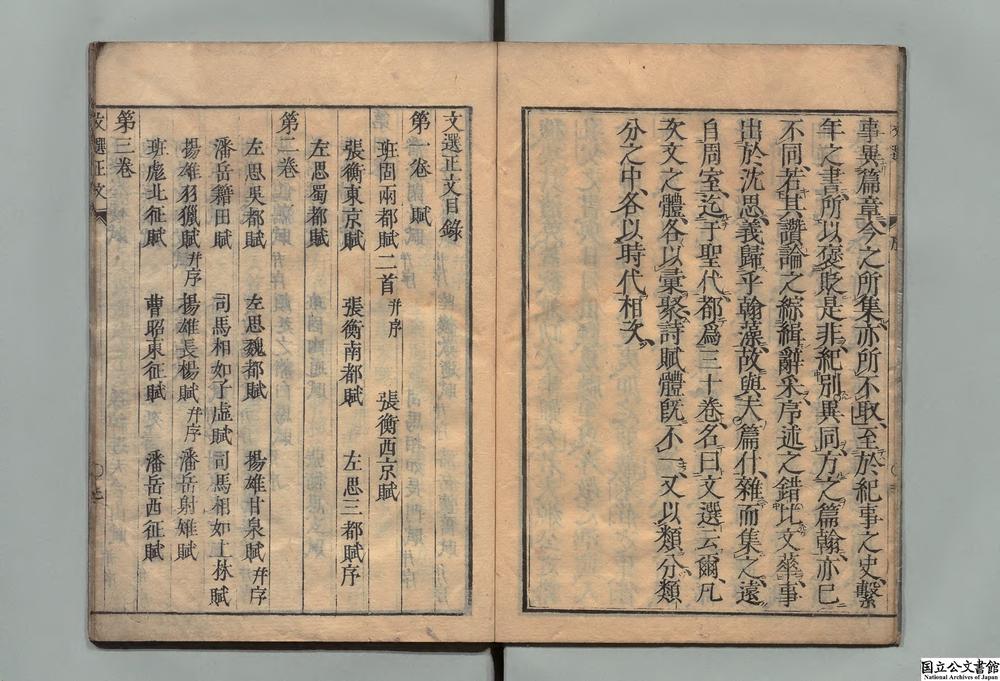 事異篇章今之所集亦所不取至於紀事之史繫
年之書所以褒貶是非紀別異同方之篇翰亦已
不同若其讚論之綜緝辭采序述之錯比文華事
出於沈思義歸乎翰藻故與夫篇什雜而集之遠
自周室迄于聖代都爲三十卷名曰文選云爾凡
次文之體各以彙聚詩賦體既不一又以類分類
分之中各以時代相次
文選正文目錄
第一卷 賦
班固兩都賦二首并序 張衡西京賦
張衡東京賦 張衡南都賦 左思三都賦序
左思蜀都賦
第二卷
左思吳都賦 左思魏都賦 揚雄甘泉賦并序
潘岳籍田賦 司馬相如子虛賦 司馬相如上林賦
揚雄羽獵賦并序 揚雄長楊賦并序 潘岳射雉賦
第三卷
班彪北征賦 曹昭東征賦 潘岳西征賦
文選正文
国立公文書館
National Archives of Japan